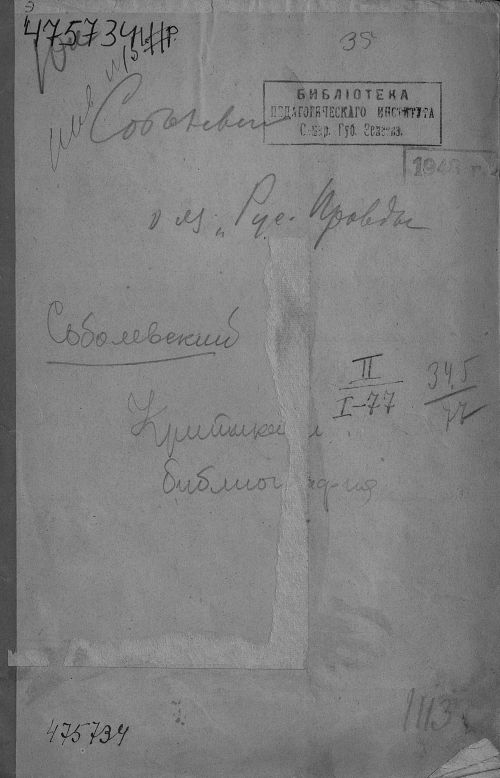 475734
35
БИБЛІОТЕКА
ПЕДАГОГИЧЕСКАГО ИНСТИТУТА
Самар. Губ. Земства.
1948 г.
о яз. „Рус. Правды
Соболевский
II
I-77
345
77
Критика и
библиография
475734
1113